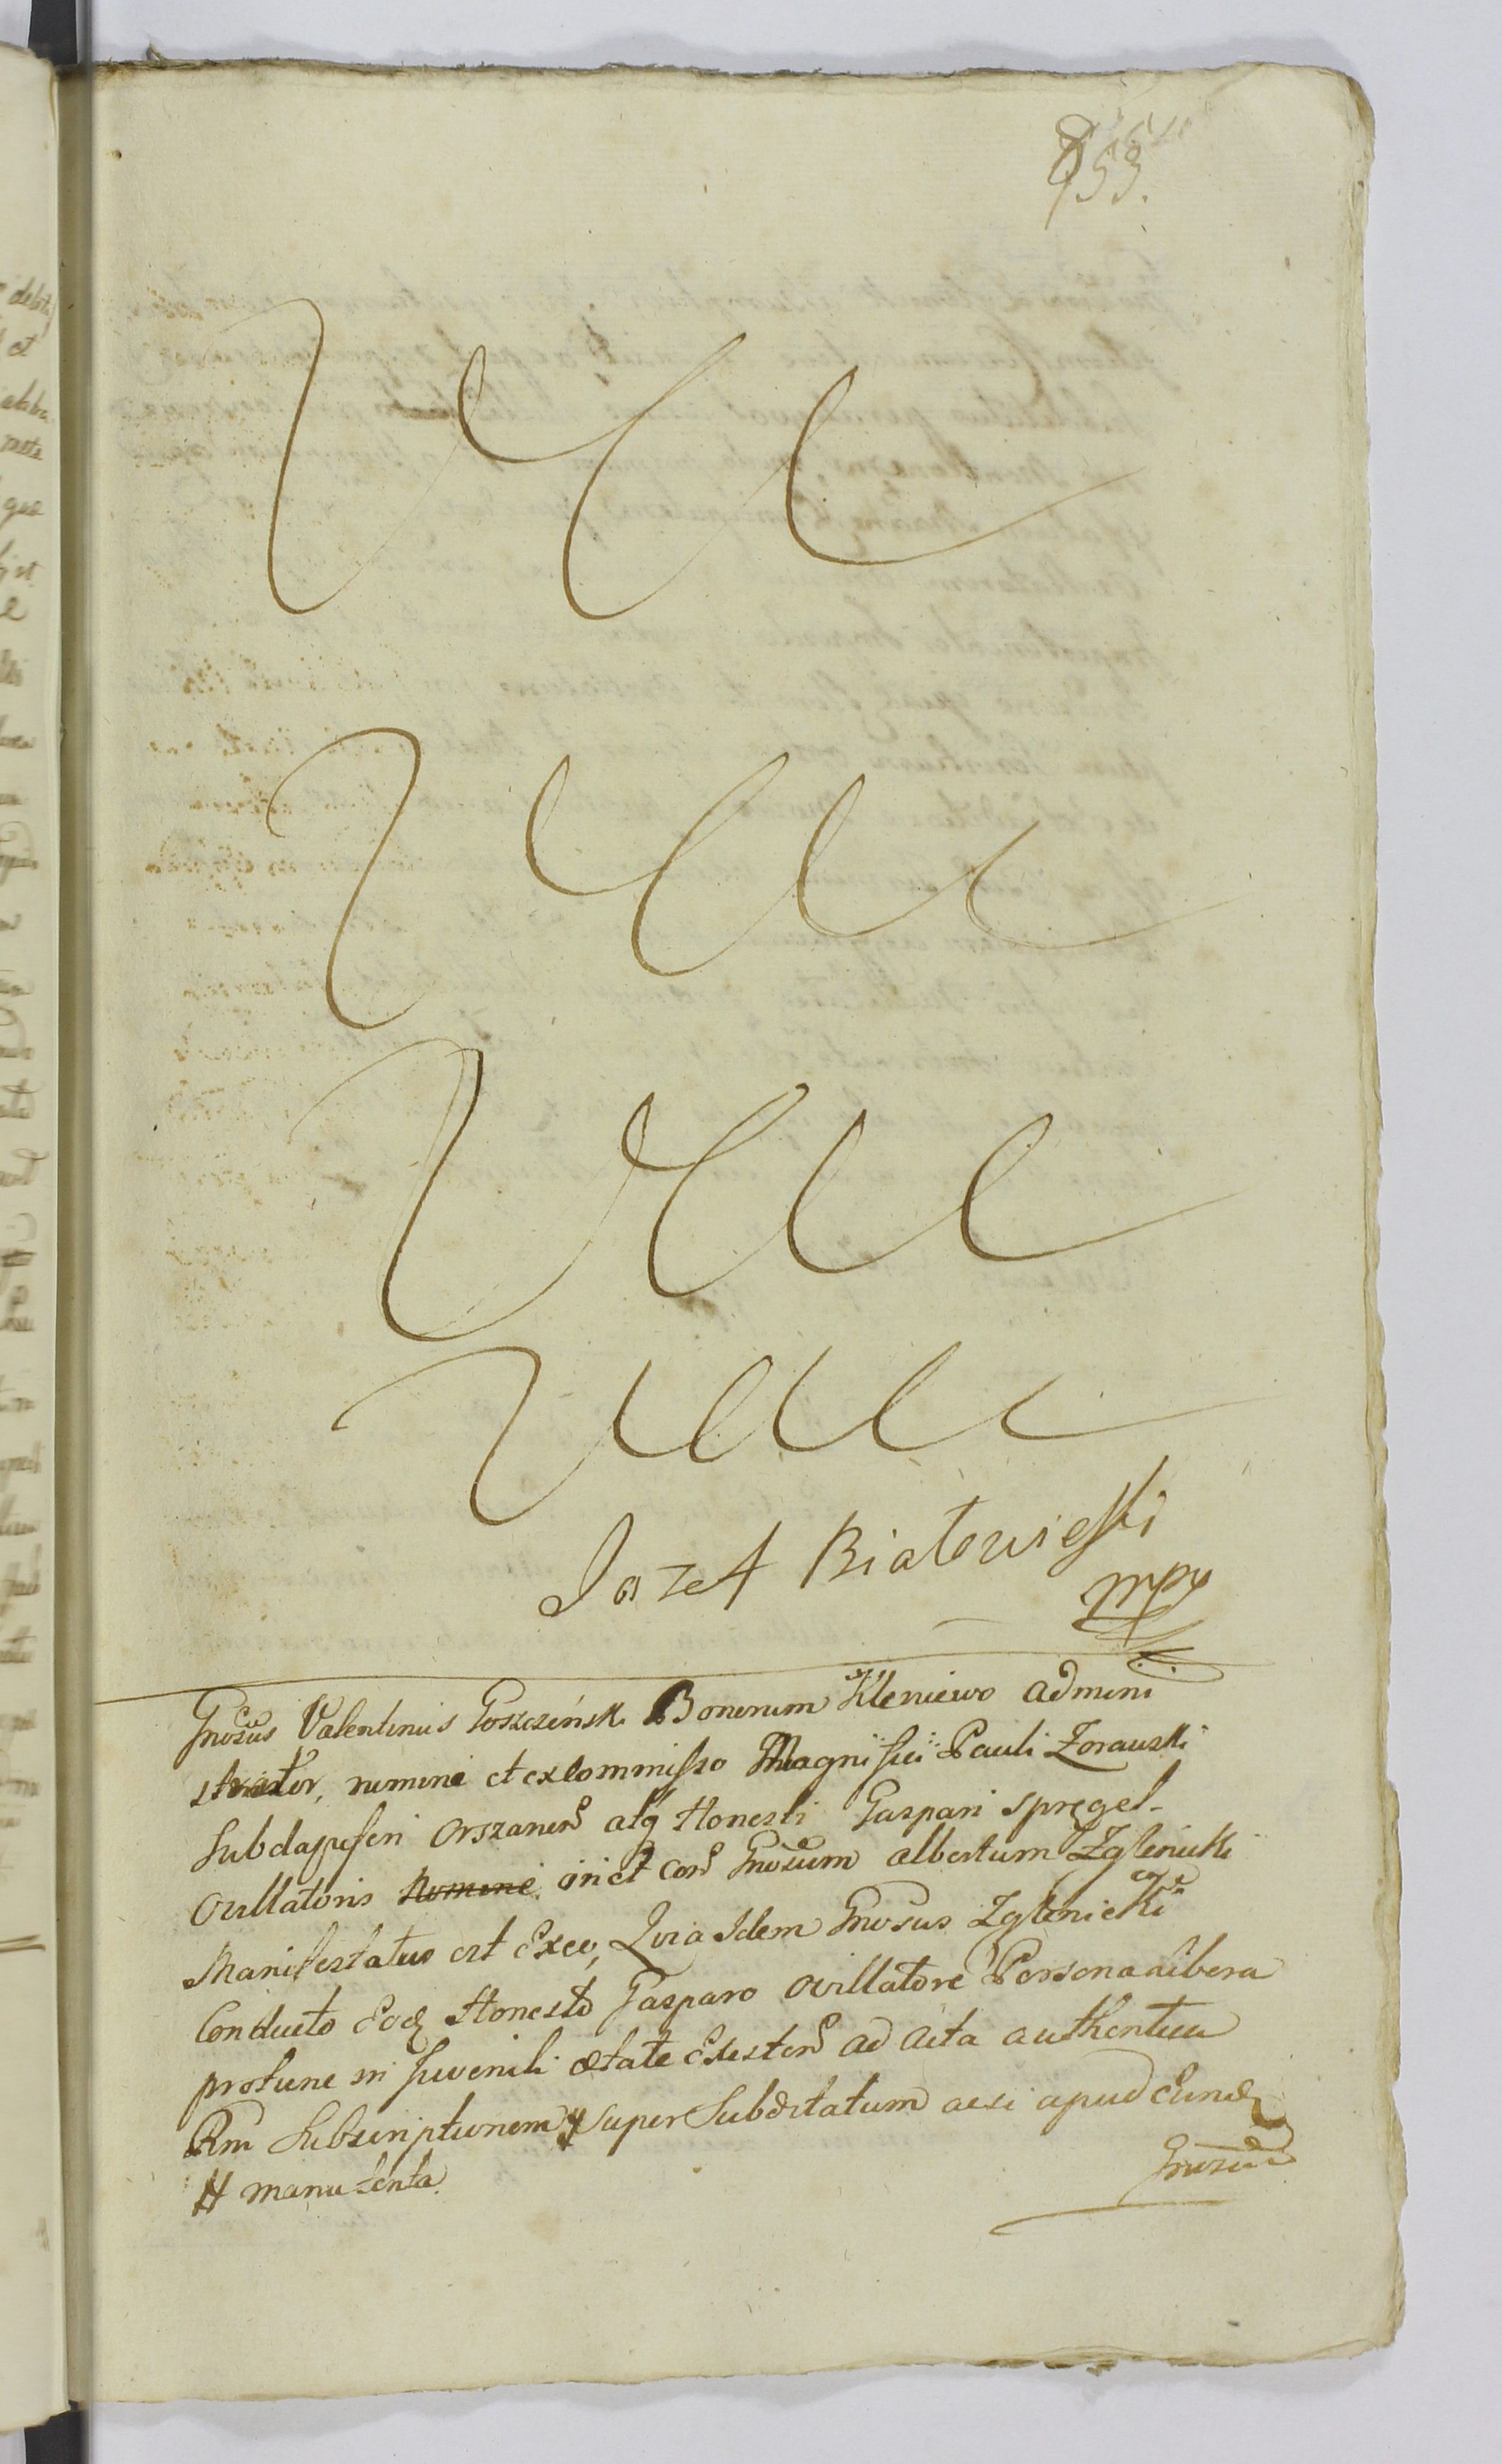 953.
Jozef Białowieski
mpp
Gnosus Valentinus Goszczeński Bonorum Kleniewo admini
strator, nomine et ex Commisso Magnifici Pauli Zorawski
Subdapiferi Orszanens atq Honesti Gaspari Spręgel
Ovillatoris Nomine in et con Gnosum Albertum Zglenicki
Manifestatus est Exeo, Quia Idem Gnosus Zglenicki
Conducto Eod Honesto Gasparo Ovillatore Persona libera
protunc in Juvenili ætate Existen ad Acta authentica
Rm Subscriptionem super Subditatum acsi apud Eund
# manutenta
Gnosum